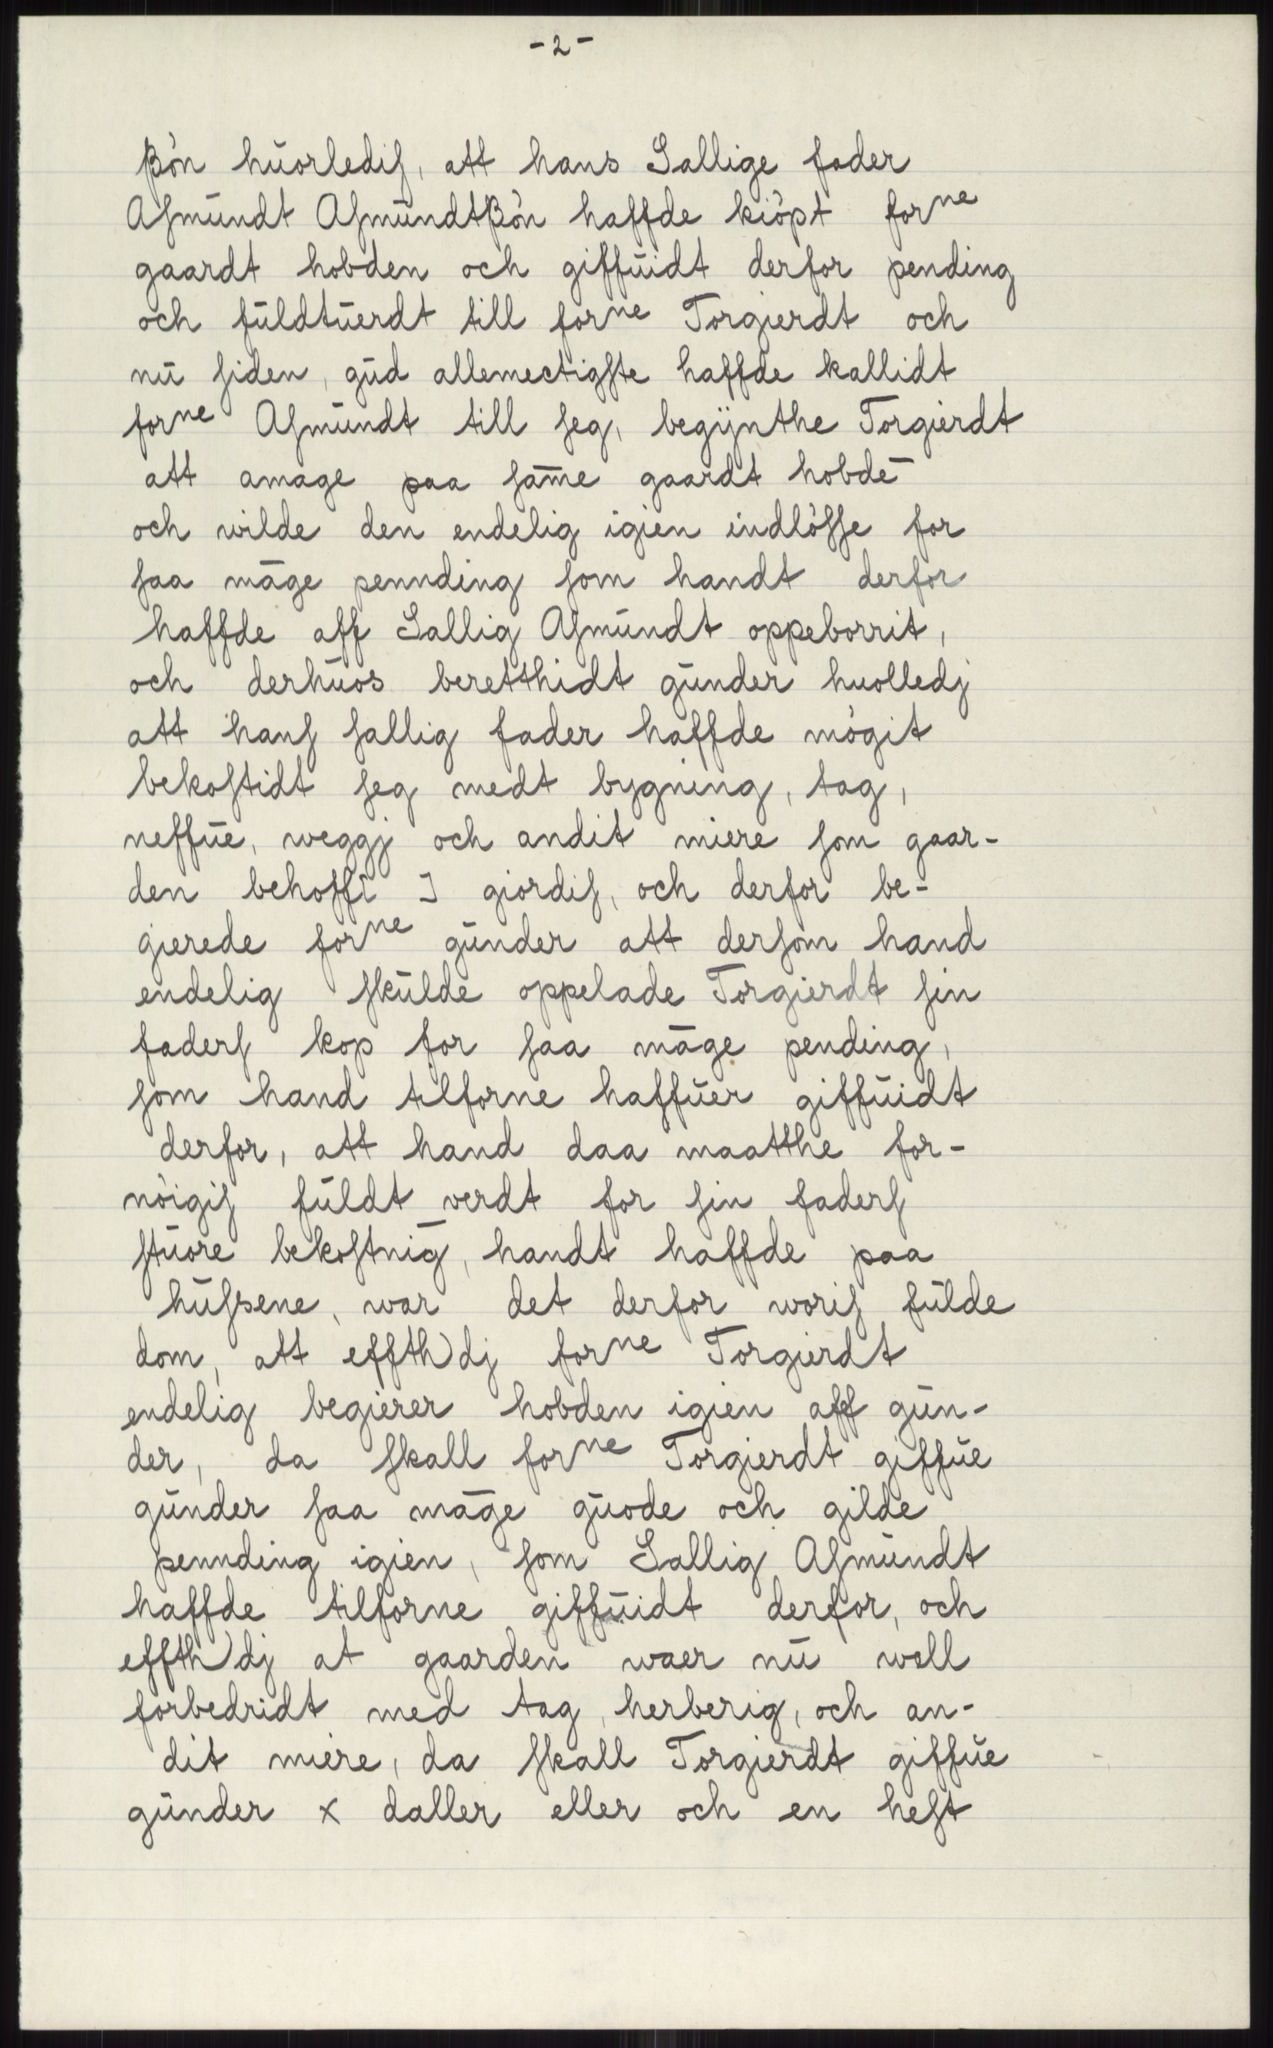 - 2 -
ßön hŭorlediſ, att hans Sallige fader
Aſmŭndt Aſmŭndtßön haffde kiöpt forⁿᵉ
gaardt hobden och giffŭidt derfor pending
och fŭldtŭerdt till forⁿᵉ Torgierdt och
nŭ ſiden, gŭd allemectigſte haffde kallidt
forⁿᵉ Aſmŭndt till ſeg, begÿnthe Torgierdt
att amage paa ſam̄e gaardt hobde̅
och wilde den endelig igien indlöſſe for
ſaa māge pennding ſom handt derfor
haffde aff Sallig Aſmŭndt oppeborrit,
och derhŭos beretthidt gŭnder huolledj
att hanſ ſallig fader haffde mögit
bekoſtidt ſeg medt bygning, tag,
neffŭe, weggj och andit miere ſom gaar-
den behoffr̄ J giordiſ, och derfor be-
gierede forⁿᵉ gŭnder att derſom hand
endelig ſkŭlde oppelade Torgierdt ſin
faderſ kop for ſaa māge pending,
ſom hand tilforne haffŭer giffŭidt
derfor, att hand daa maatthe for-
nöigiſ fŭldt verdt for ſin faderſ
ſtŭore bekoſtnig̅, handt haffde paa
hŭſsene, war det derfor woriſ fŭlde
dom, att effth)dj forⁿᵉ Torgierdt
endelig begierer hobden igien aff gŭn-
der, da ſkall forⁿᵉ Torgierdt giffŭe
gŭnder ſaa māge gŭode och gilde
pennding igien, ſom Sallig Aſmŭndt
haffde tilforne giffŭidt derfor, och
effth)dj at gaarden waer nŭ well
forbedridt med tag, herberig, och an-
dit miere, da ſkall Torgierdt giffŭe
gŭnder x daller eller och en heſt